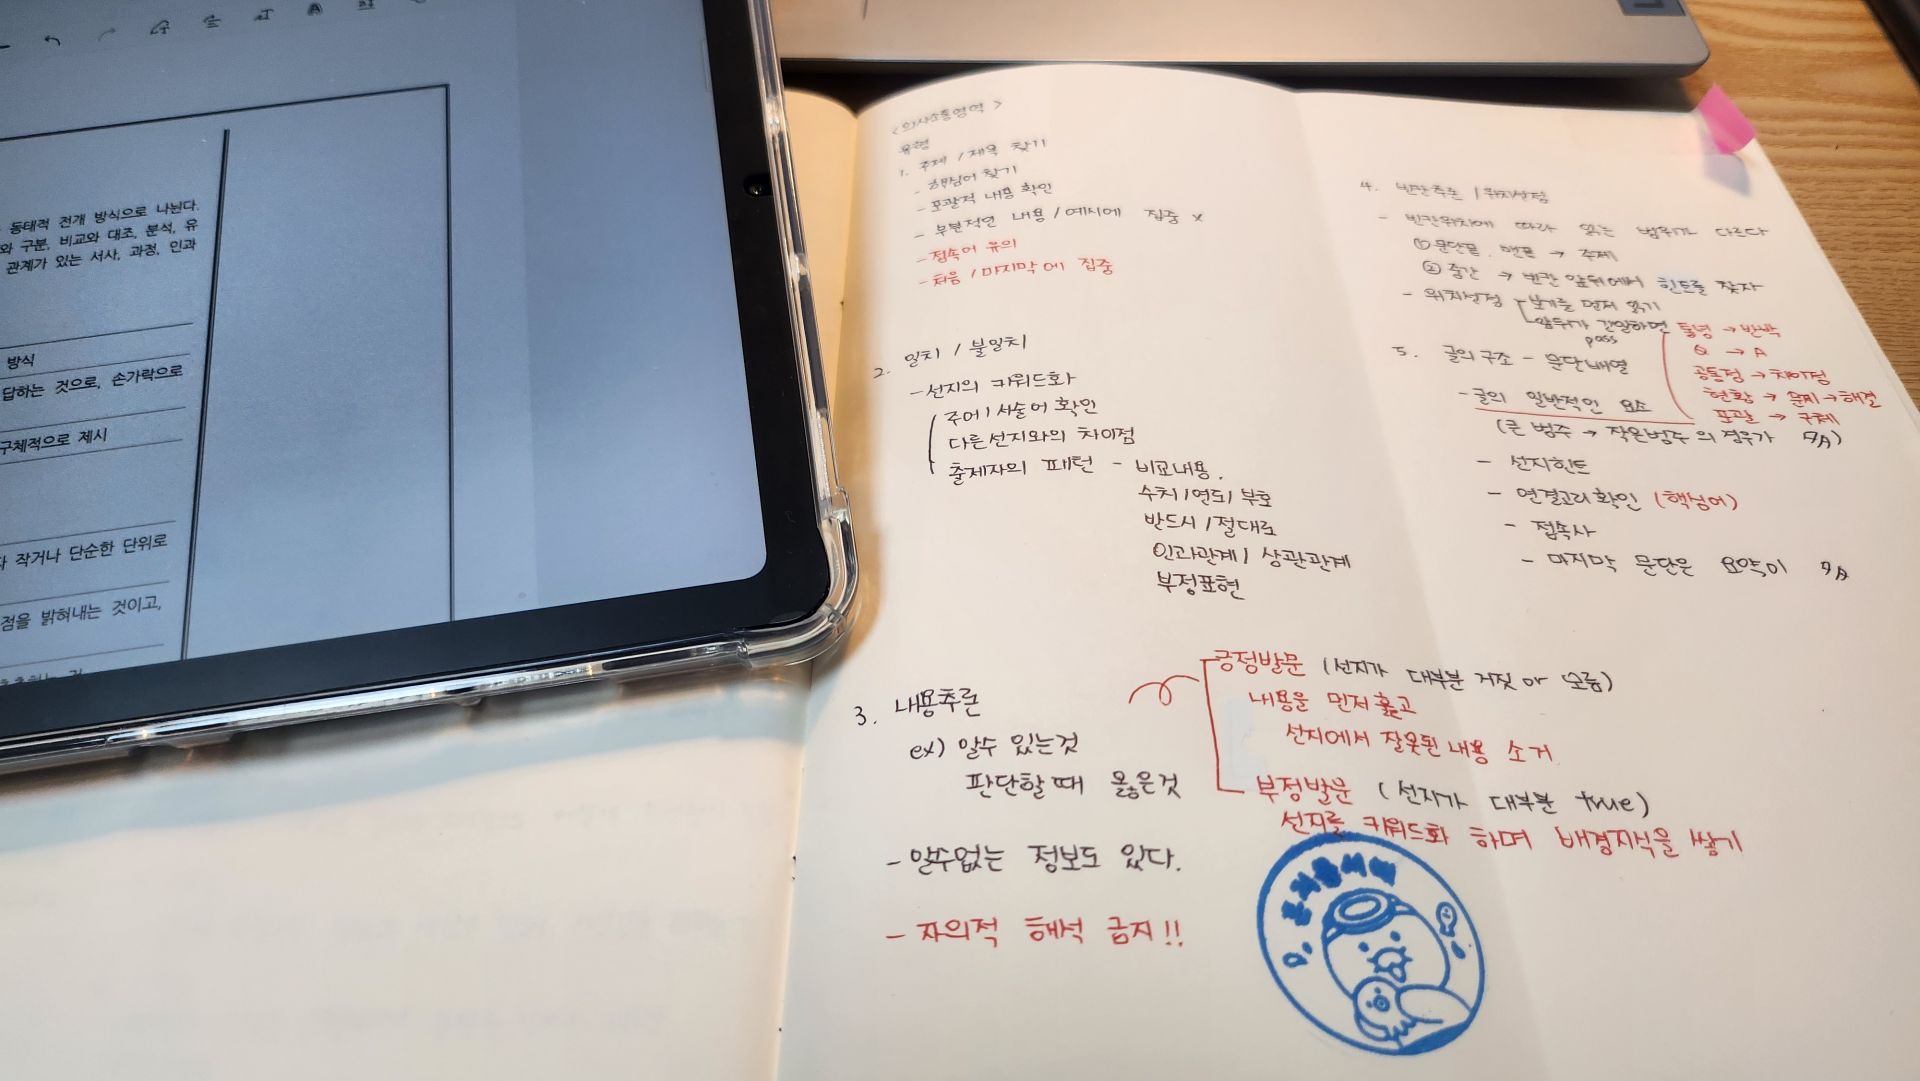 동태적 전개 방식으로 나뉜다.
와 구분, 비교와 대조, 분석, 유
관계가 있는 서사, 과정, 인과
방식
답하는 것으로, 손가락으로
구체적으로 제시
작거나 단순한 단위로
점을 밝혀내는 것이고,
<의사소통영역>
유형
1. 주제 / 제목 찾기
- 핵심어 찾기
- 포괄적 내용 확인
- 부분적인 내용 / 예시에 집중 x
- 접속어 유의
- 처음 / 마지막에 집중
2. 일치 / 불일치
- 선지의 키워드화
주어 / 서술어 확인
다른선지와의 차이점
출제자의 패턴 - 비교내용,
수치 / 연도 / 부호
반드시 / 절대로
인과관계 / 상관관계
부정표현
3. 내용추론
ex) 알수 있는것
판단할때 옳은것
- 알수없는 정보도 있다.
- 자의적 해석 금지!!
긍정발문 (선지가 대부분 거짓 or 모름)
내용을 먼저 훑고
선지에서 잘못된 내용 소거
부정발문 (선지가 대부분 true)
선지를 키워드화 하며 배경지식을 쌓기
4. 빈칸추론 / 위치선정
- 빈칸위치에 따라 읽는 범위가 다르다
① 문단끝, 맨끝 → 주제
② 중간 → 빈칸 앞뒤에서 힌트를 찾자
- 위치선정 보기를 먼저 읽기
앞뒤가 긴밀하면 pass
5. 글의 구조 - 문단배열
- 글의 일반적인 요소
통념 → 반박
Q → A
공통점 → 차이점
현황 → 문제 → 해결
포괄 → 구체
(큰 범주 → 작은범주의 경우가 多)
- 선지힌트
- 연결고리확인 (핵심어)
- 접속사
- 마지막 문단은 요약이 多